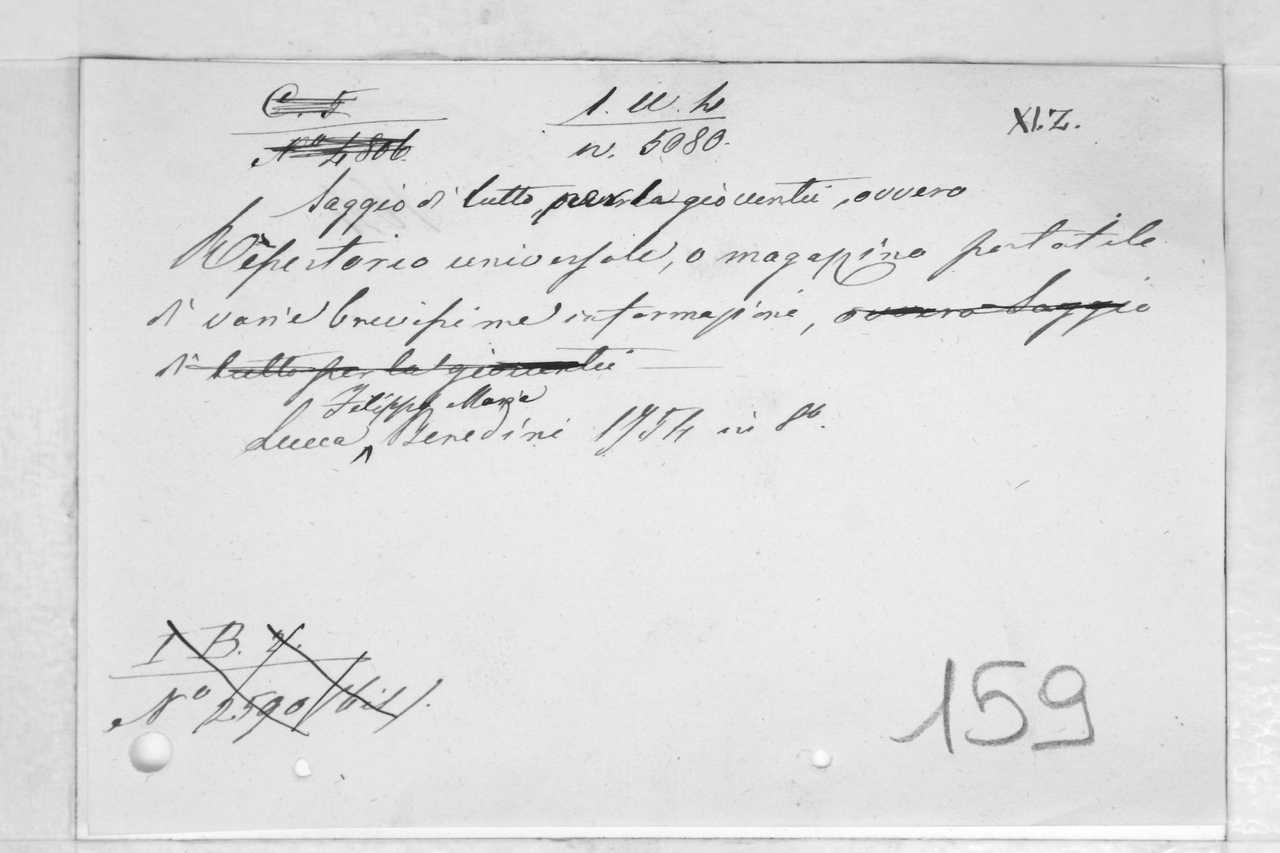 C. 5 1. U. h XI.Z.
No 4806 n. 5080.
Saggio di tutto per la gioventù, ovvero
Repertorio universale, o magazzino portatile
di varie brevissime informazioni, ovvero Saggio
di tutto per la gioventù
Filippo Maria
Lucca Benedini 1754 in 8o.
I B. 4.
No 2590 (bis).
159